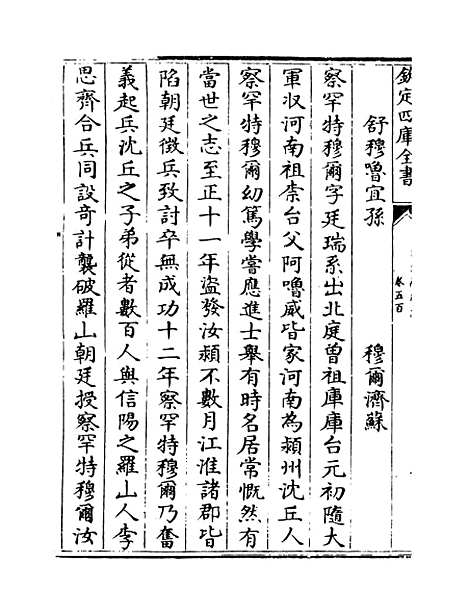 欽定四庫全書
卷五百
舒穆嚕宜孫　穆爾濟蘇
察罕特穆爾字廷瑞系出北庭曾祖庫庫台元初隨大
軍収河南祖柰台父阿嚕威皆家河南為潁州沈丘人
察罕特穆爾幼篤學嘗應進士舉有時名居常慨然有
當世之志至正十一年盜發汝潁不數月江淮諸郡皆
陷朝廷徴兵致討卒無成功十二年察罕特穆爾乃奮
義起兵沈丘之子弟從者數百人與信陽之羅山人李
思齊合兵同設奇計襲破羅山朝廷授察罕特穆爾汝